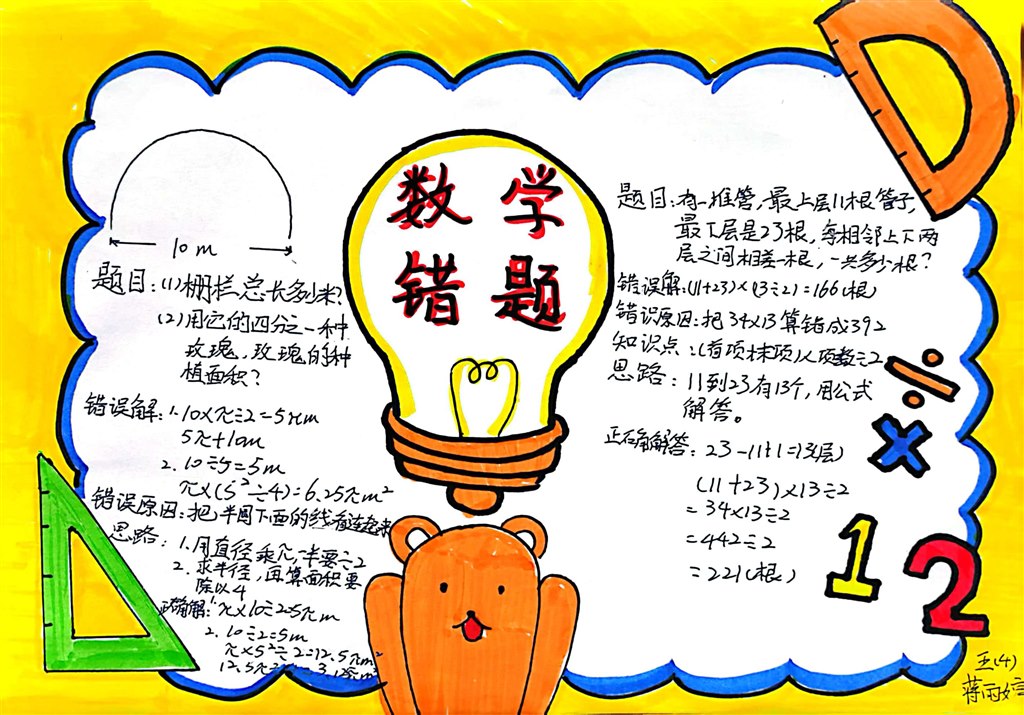 数学
错题
10m
题目:(1)栅栏总长多少米?
(2)用它的四分之一种
玫瑰,玫瑰的种
植面积?
错误解:1.10×π÷2=5πm
5π+10m
2.10÷5=5m
π×(5²÷4)=6.25πm²
错误原因:把半圆下面的线
思路:1.用直径乘π,一半要÷2
2.求半径,再算面积要
除以4
正确解:1.π×10÷2=5πm
2.10÷2=5m
π×5²÷2=12.5πm²
题目:有一堆管,最上层11根管子,
最下层是23根,每相邻上下两
层之间相差一根,一共多少根?
错误解:(11+23)×(13÷2)=166(根)
错误原因:把34×13算错成392
知识点:(首项+末项)×项数÷2
思路:11到23有13个,用公式
解答。
正确解答:23-11+1=13(层)
(11+23)×13÷2
=34×13÷2
=442÷2
=221(根)
÷
×
12
五(4)
蒋雨